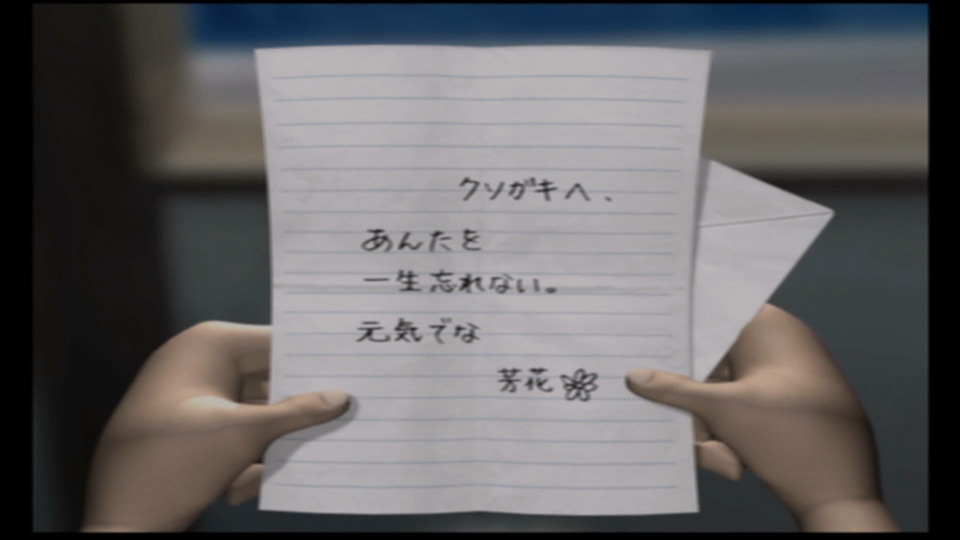 クソガキへ、
あんたを
一生忘れない。
元気でな
芳花